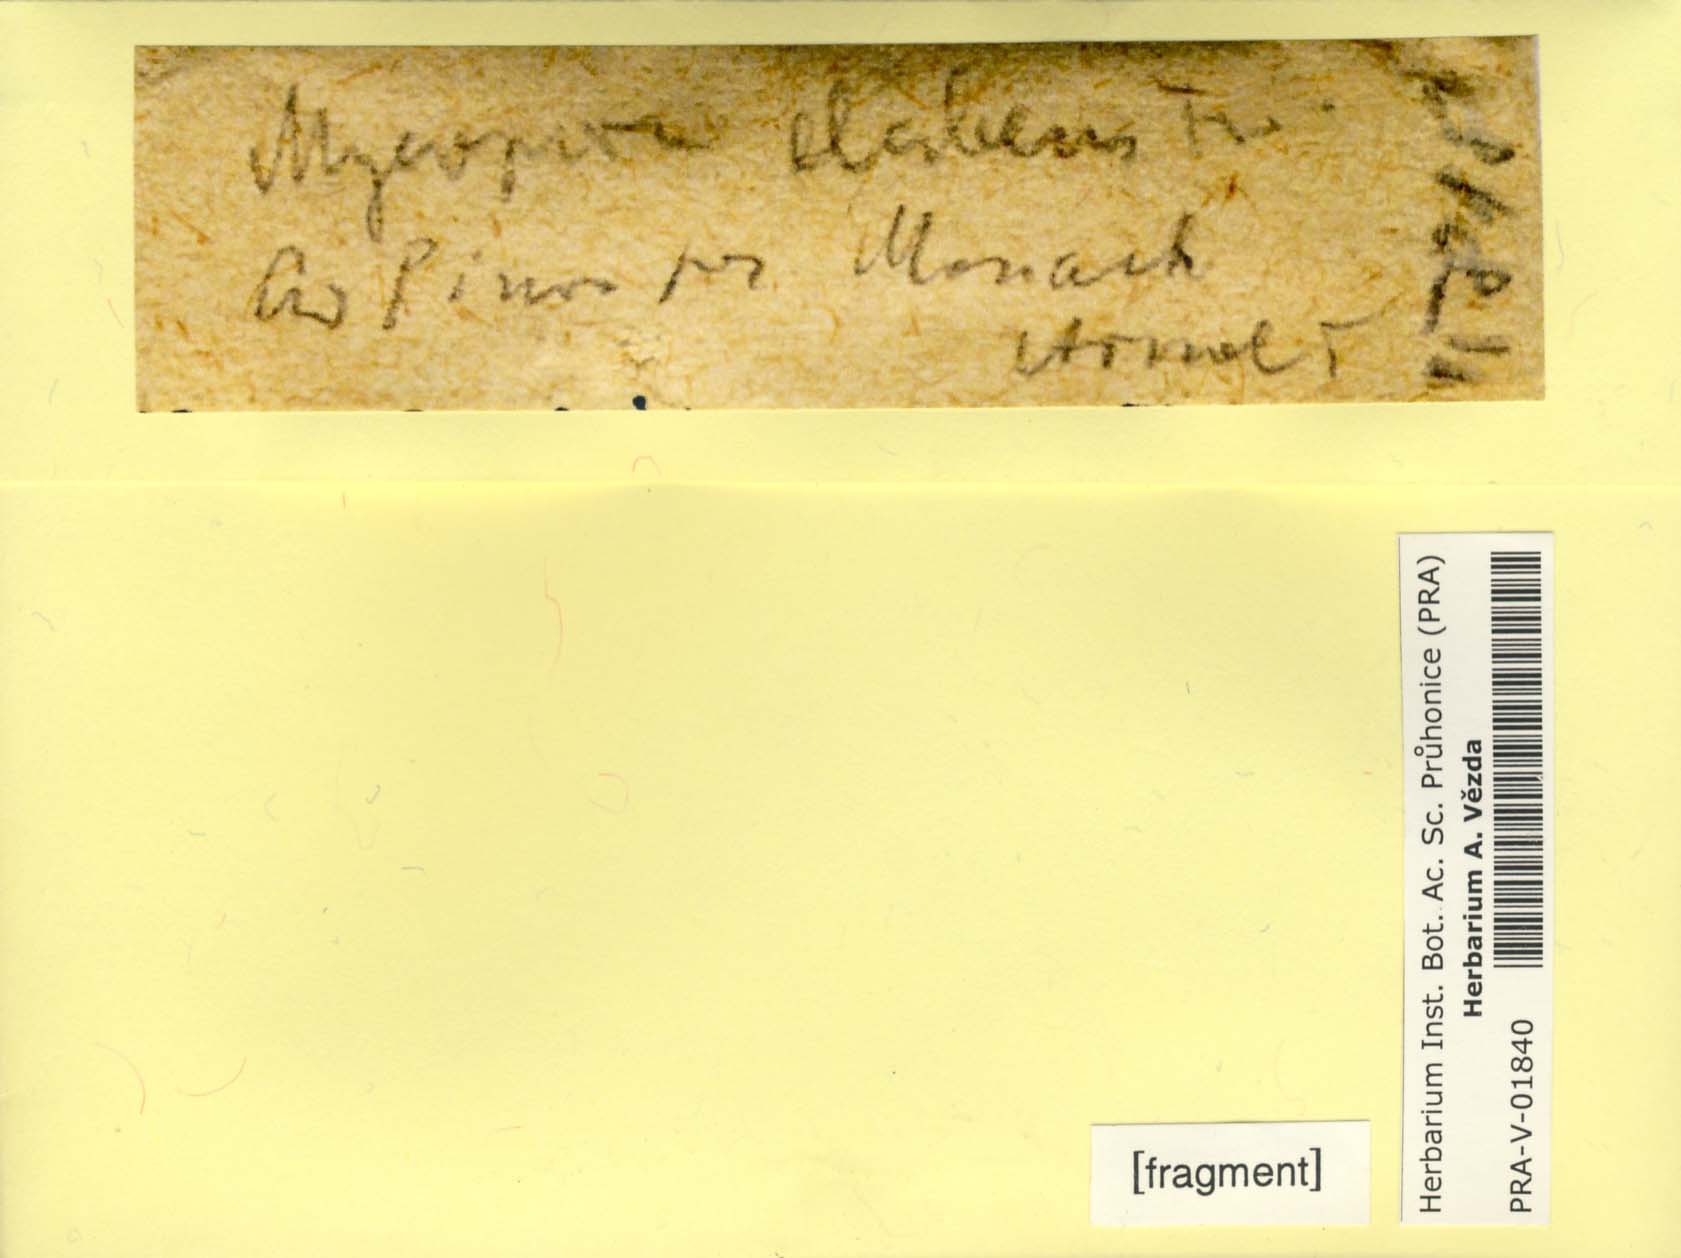 Mycoporum elabens Fw.
Ad Pinos pr. Monach
Arnold
[fragment]
Herbarium Inst. Bot. Ac. Sc. Průhonice (PRA)
Herbarium A. Vězda
PRA-V-01840